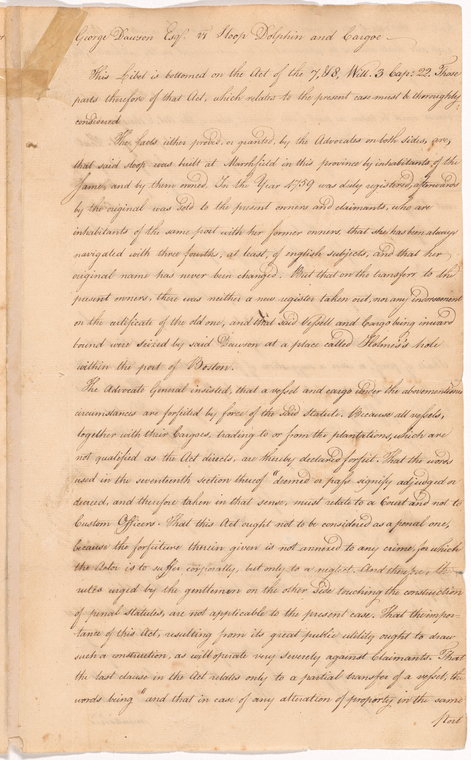 George Dawson Esqr. vs Sloop Dolphin and Cargoe
This Libel is bottomed on the Act of the 7. & 8. Will. 3 Cap: 22. Those
parts therefore of that Act, which relates to the present case must be thoroughly
considered
The facts either proved, or granted, by the Advocates on both sides, are,
that said sloop was built at Marshfield in this province by inhabitants of the
same, and by them owned. In the Year 1759 was duly registred, afterwards
by the original was sold to the present owners and claimants, who are
inhabitants of the same port with her former owners that she has been always
navigated with three fourths, at least, of english subjects, and that her
original name has never been changed. But that on the transferr to the
present owners, there was neither a new register taken out, nor any endorsement
on the certificate of the old one, and that said Vessell and Cargo being inward
bound were seized by said Dawson at a place called Holmes's hole
within the port of Boston.
The Advocate General insisted, that a vessel and cargo under the abovementioned
circumstances are forfeited by force of the said statute. Because all vessels,
together with their Cargoes, trading to or from the plantations, which are
not qualified as the Act directs, are thereby declared forfeit. That the words
used in the seventeenth section thereof "deemed or pass signify adjudged or
decreed, and therefore taken in that sense, must relate to a Court and not to
Custom Officers. That this Act ought not to be considered as a penal one,
because the forfeiture therein given is not annexed to any crime, for which
the Actor is to suffer corporally, but only to a neglect. And therefore the
rules urged by the gentlemen on the other side touching the construction
of penal statutes, are not applicable to the present case. That the impor-
tance of this Act, resulting from its great public utility ought to draw
such a construction, as will operate very severely against Claimants. That
the last clause in the Act relates only to a partial transfer of a vessel, the
words being "and that in case of any alteration of property in the same